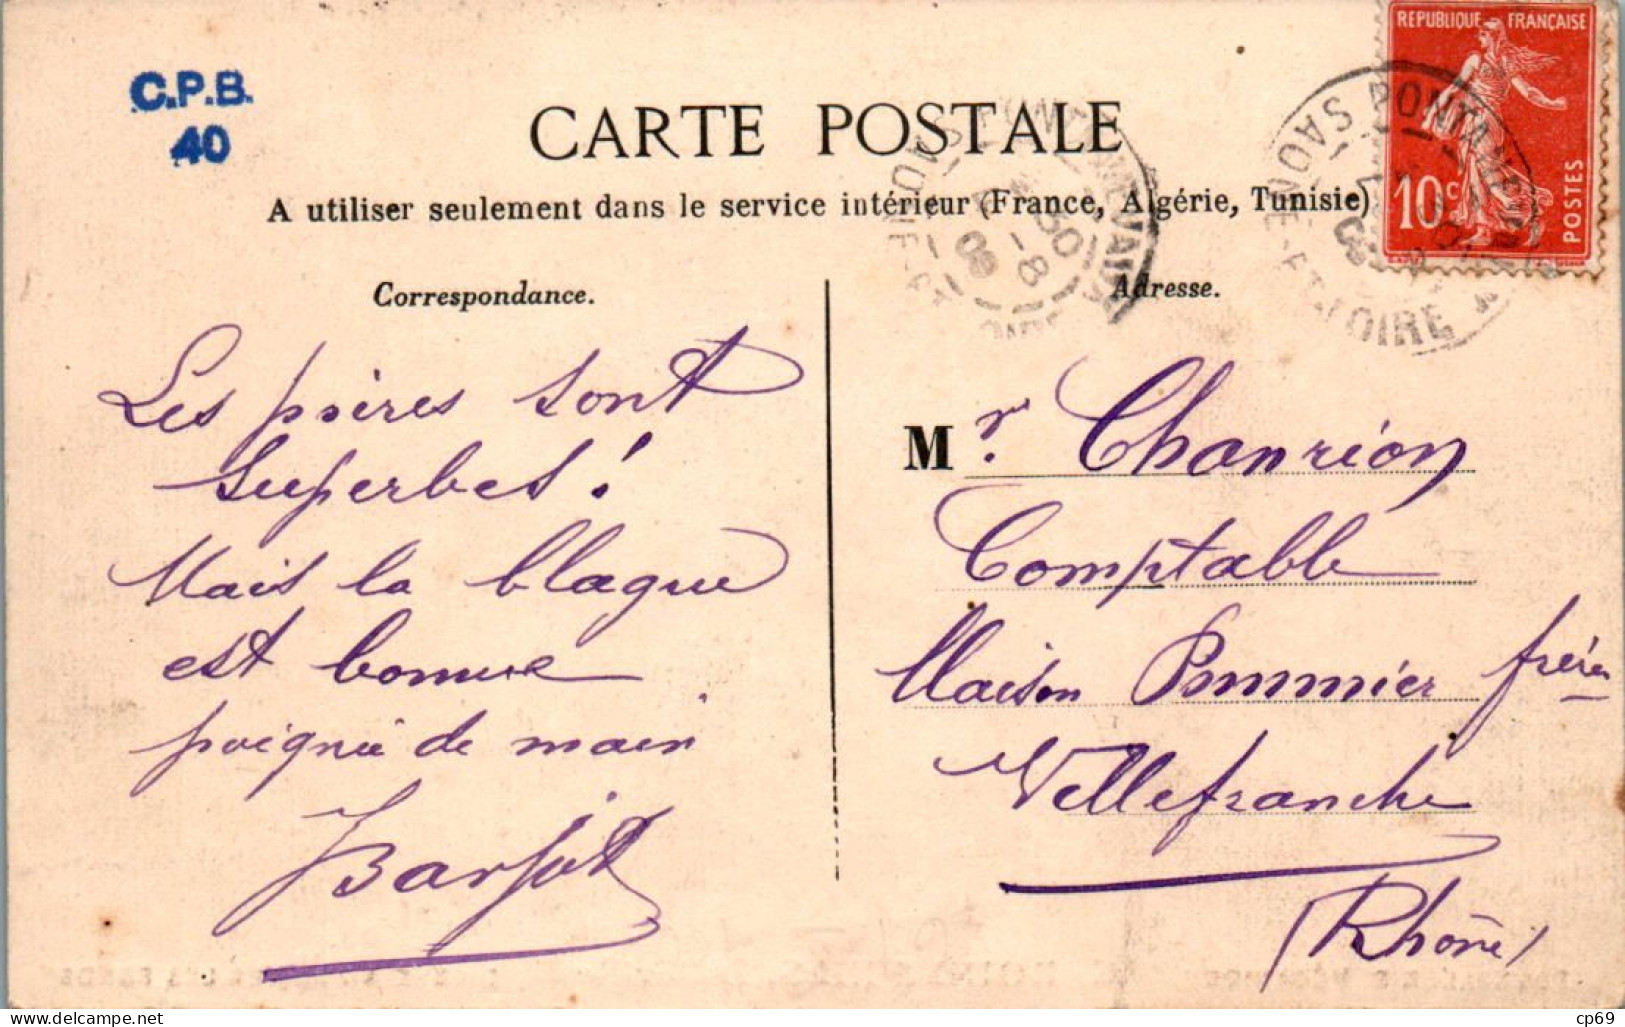 C.P.B.
40
CARTE POSTALE
A utiliser seulement dans le service intérieur (France, Algérie, Tunisie)
REPUBLIQUE FRANÇAISE
10c
POSTES
SAONE-ET-LOIRE
Correspondance.
Les poires sont
superbes!
Mais la blague
est bonne
poignée de main
Barjot
Adresse.
Mr. Chanrion
Comptable
Maison Pommier frères
Villefranche
(Rhône)
cp69